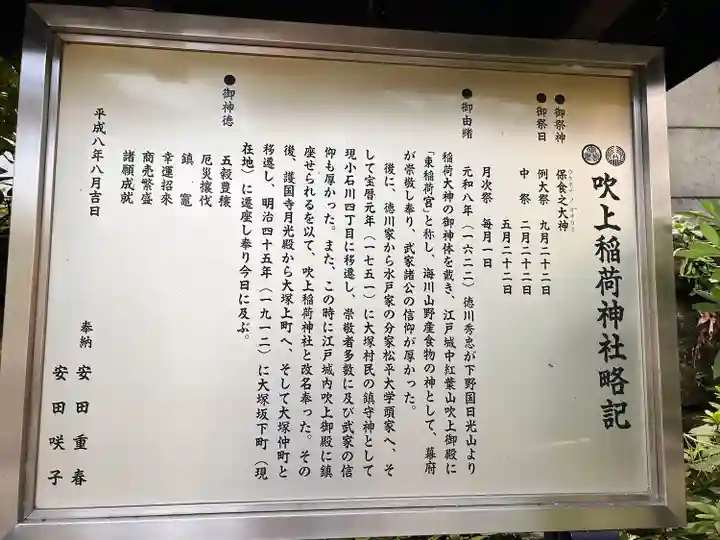 吹上稲荷神社略記
●御祭神　保食之大神
●御祭日　例大祭　九月二十二日
中祭　二月二十二日
五月二十二日
月次祭　毎月一日
●御由緒
元和八年（一六二二）徳川秀忠が下野国日光山より
稲荷大神の御神体を戴き、江戸城中紅葉山吹上御殿に
「東稲荷宮」と称し、海川山野産食物の神として、幕府
が崇敬し奉り、武家諸公の信仰が厚かった。
後に、徳川家から水戸家の分家松平大学頭家へ、そ
して宝暦元年（一七五一）に大塚村民の鎮守神として
現小石川四丁目に移遷し、崇敬者多数に及び武家の信
仰も厚かった。また、この時に江戸城内吹上御殿に鎮
座せられるを以て、吹上稲荷神社と改名奉った。その
後、護国寺月光殿から大塚上町へ、そして大塚仲町と
移遷し、明治四十五年（一九一二）に大塚坂下町（現
在地）に遷座し奉り今日に及ぶ。
●御神徳
五穀豊穣
厄災攘伐
鎮竈
幸運招来
商売繁盛
諸願成就
平成八年八月吉日
奉納　安田重春
安田咲子